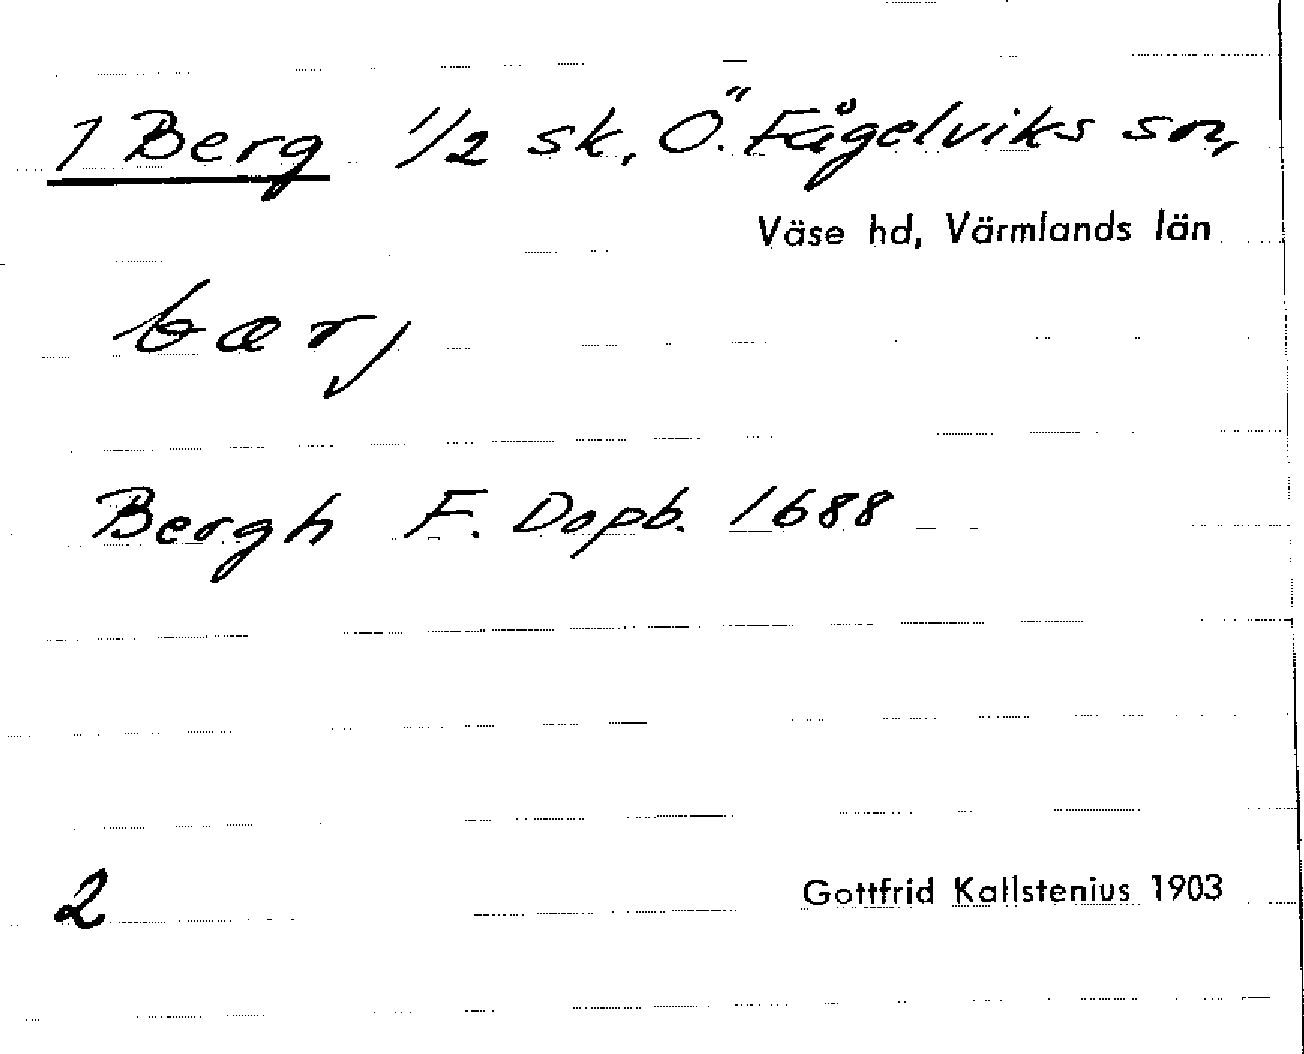 1 Berg 1/2 sk, Ö. Fågelviks sn,
Väse hd, Värmlands län
bærj
Bergh F. Dopb. 1688
2
Gottfrid Kallstenius 1903